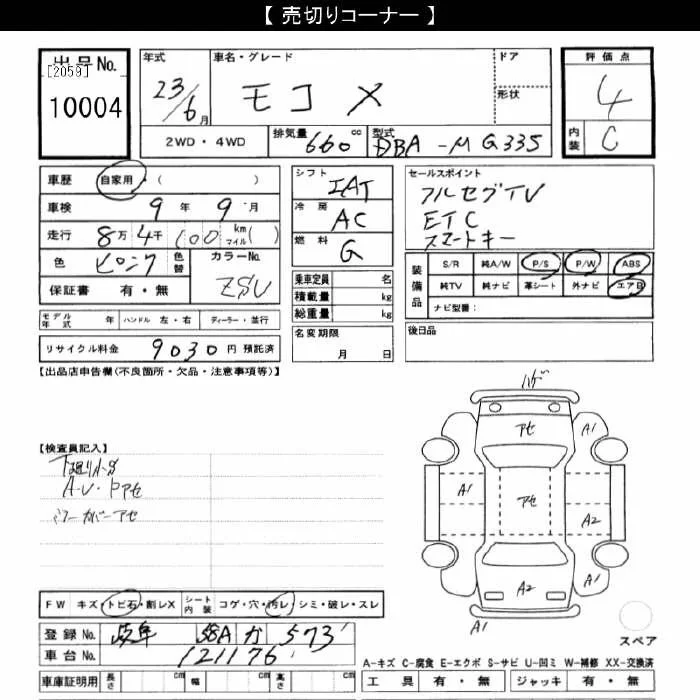 【 売切りコーナー 】
出品No.
[2059]
10004
年式
23/6月
車名・グレード
モコ X
ドア
形状
評価点
4
内装 C
2WD・4WD
排気量 660 cc
型式 DBA-MG33S
車歴 自家用・( )
車検 9年 9月
走行 8万 4千 100 km(マイル)
色 ピンク 色替
カラーNo. ZSU
保証書 有・無
シフト IAT
冷房 AC
燃料 G
乗車定員 名
積載量 kg
総重量 kg
セールスポイント
フルセグTV
ETC
スマートキー
装備品
S/R 純A/W P/S P/W ABS
純TV 純ナビ 革シート 外ナビ エアB
ナビ型番:
モデル年式 年 ハンドル 左・右 ディーラー・並行
リサイクル料金 9030 円 預託済
名変期限
月 日
後日品
【出品店申告欄(不良箇所・欠品・注意事項等)】
ハゲ
アセ
A1
【検査員記入】
A-U・ドアセ
ミラーカバーアセ
A1
アセ
A2
A2
A1
A1
FW キズ・トビ石・割レX シート内装 コゲ・穴・汚レ・シミ・破レ・スレ
登録No. 岐阜 58A か 573
車台No. 121176
スペア
A-キズ C-腐食 E-エクボ S-サビ U-凹ミ W-補修 XX-交換済
車庫証明用 長さ cm 幅 cm 高さ cm
工具 有・無 ジャッキ 有・無